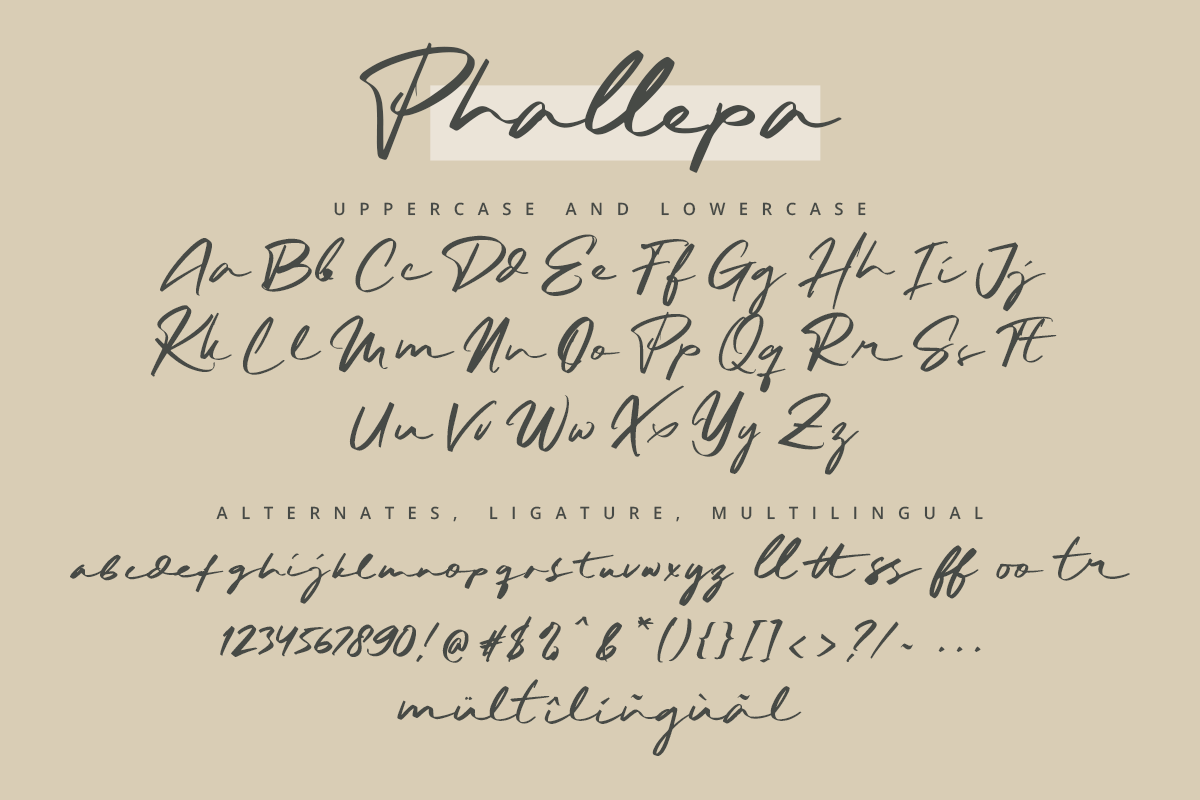 Phallepa
UPPERCASE AND LOWERCASE
Aa Bb Cc Dd Ee Ff Gg Hh Ii Jj
Kk Ll Mm Nn Oo Pp Qq Rr Ss Tt
Uu Vv Ww Xx Yy Zz
ALTERNATES, LIGATURE, MULTILINGUAL
abcdefghijklmnopqrstuvwxyz ll tt ss ff oo tr
1234567890!@#$%^&*(){}[]<>?/~ ...
mültîlíñgùãl